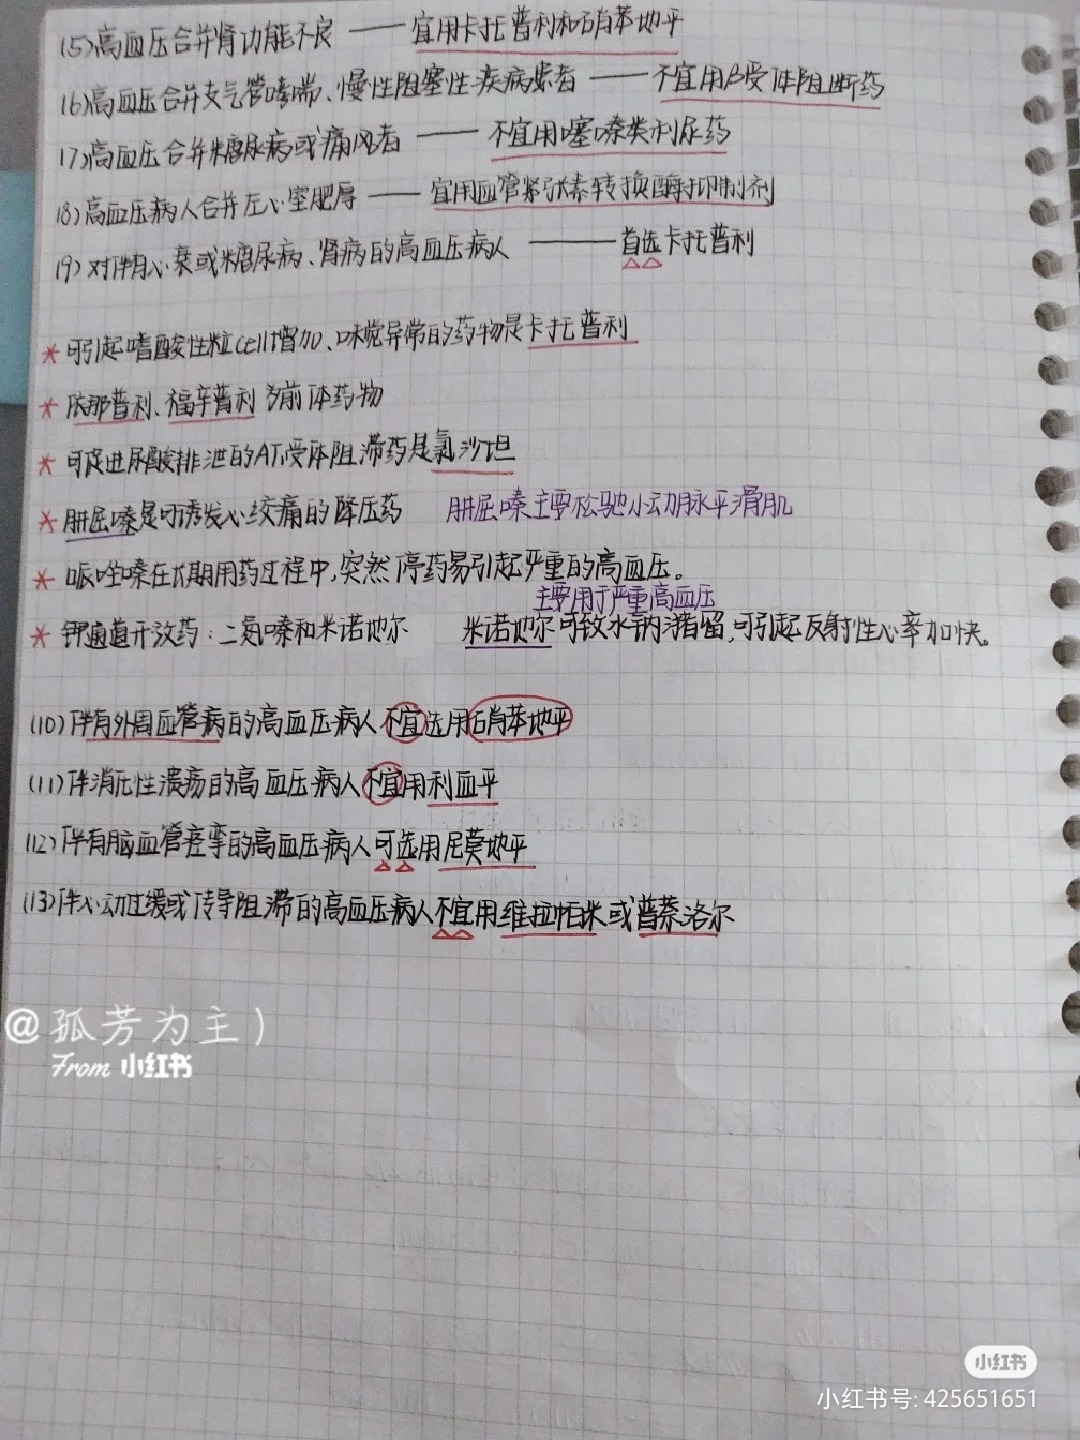 (5)高血压合并肾功能不良 —— 宜用卡托普利和硝苯地平
(6)高血压合并支气管哮喘、慢性阻塞性疾病患者 —— 不宜用β受体阻断药
(7)高血压合并糖尿病或痛风者 —— 不宜用噻嗪类利尿药
(8)高血压病人合并左心室肥厚 —— 宜用血管紧张素转换酶抑制剂
(9)对伴有心衰或糖尿病、肾病的高血压病人 —— 首选卡托普利
* 可引起嗜酸性粒cell增加、味觉异常的药物是卡托普利
* 依那普利、福辛普利为前体药物
* 可促进尿酸排泄的AT₁受体阻滞药是氯沙坦
* 肼屈嗪是可诱发心绞痛的降压药 肼屈嗪主要松驰小动脉平滑肌
* 哌唑嗪在长期用药过程中,突然停药易引起严重的高血压。
主要用于严重高血压
* 钾通道开放药:二氮嗪和米诺地尔 米诺地尔可致水钠潴留,可引起反射性心率加快。
(10)伴有外周血管病的高血压病人不宜选用硝苯地平
(11)伴消化性溃疡的高血压病人不宜用利血平
(12)伴有脑血管痉挛的高血压病人可选用尼莫地平
(13)伴心动过缓或传导阻滞的高血压病人不宜用维拉帕米或普萘洛尔
@孤芳为主)
From 小红书
小红书
小红书号: 425651651